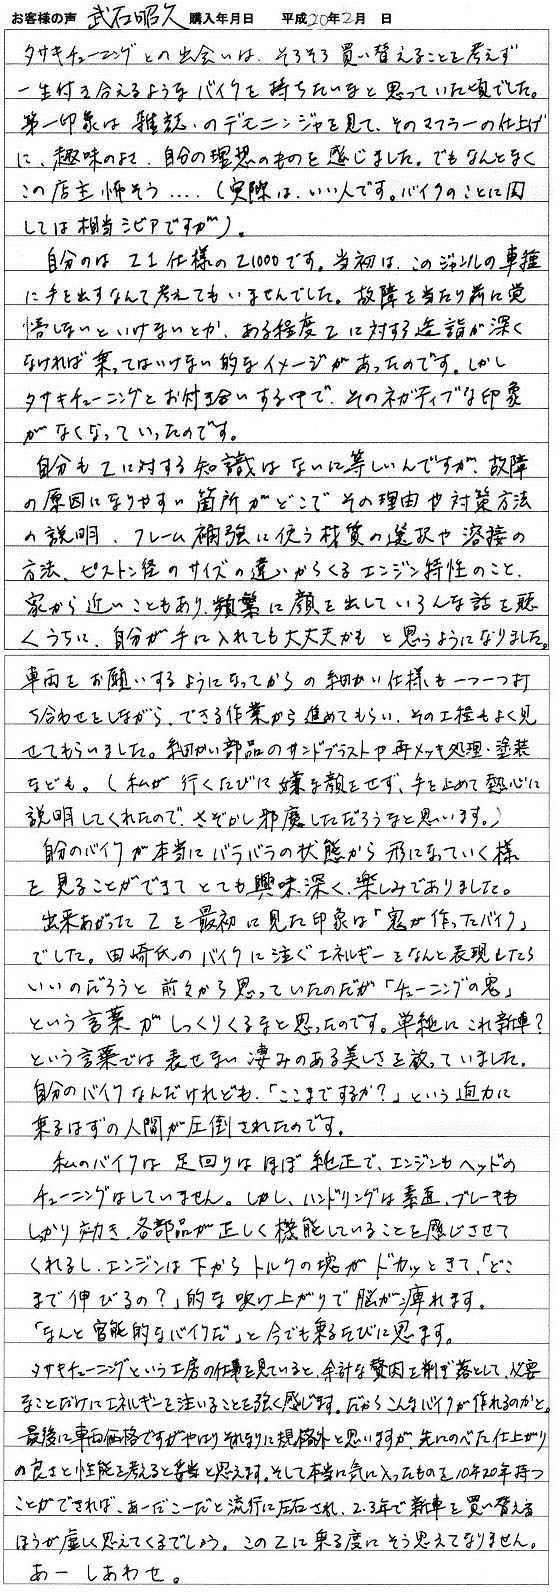 お客様の声 武石昭久 購入年月日 平成20年2月 日
タサキチューニングとの出会いは、そろそろ買い替えることを考えず
一生付き合えるようなバイクを持ちたいなと思っていた頃でした。
第一印象は雑誌のデモニンジャを見て、そのマフラーの仕上げ
に、趣味のよさ、自分の理想のものを感じました。でもなんとなく
この店主怖そう‥‥(実際は、いい人です。バイクのことに関
しては相当シビアですが)。
自分のはZ1仕様のZ1000です。当初は、このジャンルの車種
に手を出すなんて考えてもいませんでした。故障を当たり前に覚
悟しないといけないとか、ある程度Zに対する造詣が深く
なければ乗ってはいけない的なイメージがあったのです。しかし
タサキチューニングとお付き合いする中で、そのネガティブな印象
がなくなっていったのです。
自分もZに対する知識はないに等しいんですが、故障
の原因になりやすい箇所がどこでその理由や対策方法
の説明、フレーム補強に使う材質の選択や溶接の
方法、ピストン径のサイズの違いからくるエンジン特性のこと、
家から近いこともあり、頻繁に顔を出していろんな話を聴
くうちに、自分が手に入れても大丈夫かもと思うようになりました。
車両をお願いするようになってからの細かい仕様も一つ一つ打
ち合わせをしながら、できる作業から進めてもらい、その工程もよく見
せてもらいました。細かい部品のサンドブラストや再メッキ処理・塗装
なども。(私が行くたびに嫌な顔をせず、手を止めて熱心に
説明してくれたので、さぞかし邪魔しただろうなと思います。)
自分のバイクが本当にバラバラの状態から形になっていく様
を見ることができてとても興味深く、楽しみでありました。
出来あがったZを最初に見た印象は「鬼が作ったバイク」
でした。田崎氏のバイクに注ぐエネルギーをなんと表現したら
いいのだろうと前々から思っていたのだが「チューニングの鬼」
という言葉がしっくりくるなと思ったのです。単純にこれ新車?
という言葉では表せない凄みのある美しさを放っていました。
自分のバイクなんだけれども、「ここまでするか?」という迫力に
乗るはずの人間が圧倒されたのです。
私のバイクは足回りはほぼ純正で、エンジンもヘッドの
チューニングはしていません。しかし、ハンドリングは素直、ブレーキも
しっかり効き、各部品が正しく機能していることを感じさせて
くれるし、エンジンは下からトルクの塊がドカッときて、「どこ
まで伸びるの?」的な吹け上がりで脳が痺れます。
「なんと官能的なバイクだ」と今でも乗るたびに思います。
タサキチューニングという工房の仕事を見ていると、余計な贅肉を削ぎ落として、必要
なことだけにエネルギーを注いることを強く感じます。だからこんなバイクが作れるのかと。
最後に車両価格ですがやはりそれなりに規格外と思いますが、先にのべた仕上がり
の良さと性能を考えると妥当と思えます。そして本当に気に入ったものを10年20年持つ
ことができれば、あーだこーだと流行に左右され、2.3年で新車を買い替える
ほうが虚しく思えてくるでしょう。このZに乗る度にそう思えてなりません。
あーしあわせ。